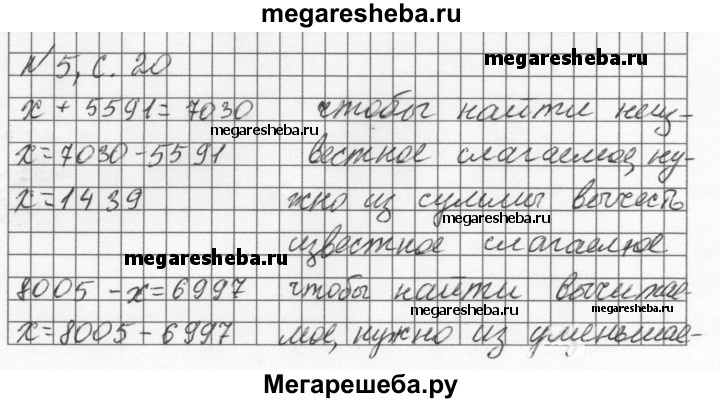 megaresheba.ru
N 5, с. 20
megaresheba.ru
x + 5591 = 7030 чтобы найти неиз-
megaresheba.ru
x = 7030 - 5591 вестное слагаемое, ну-
x = 1439 жно из суммы вычесть
megaresheba.ru
известное слагаемое
megaresheba.ru
8005 - x = 6997 чтобы найти вычитае-
megaresheba.ru megaresheba.ru
x = 8005 - 6997 мое, нужно из уменьшае-
Мегарешеба.ру